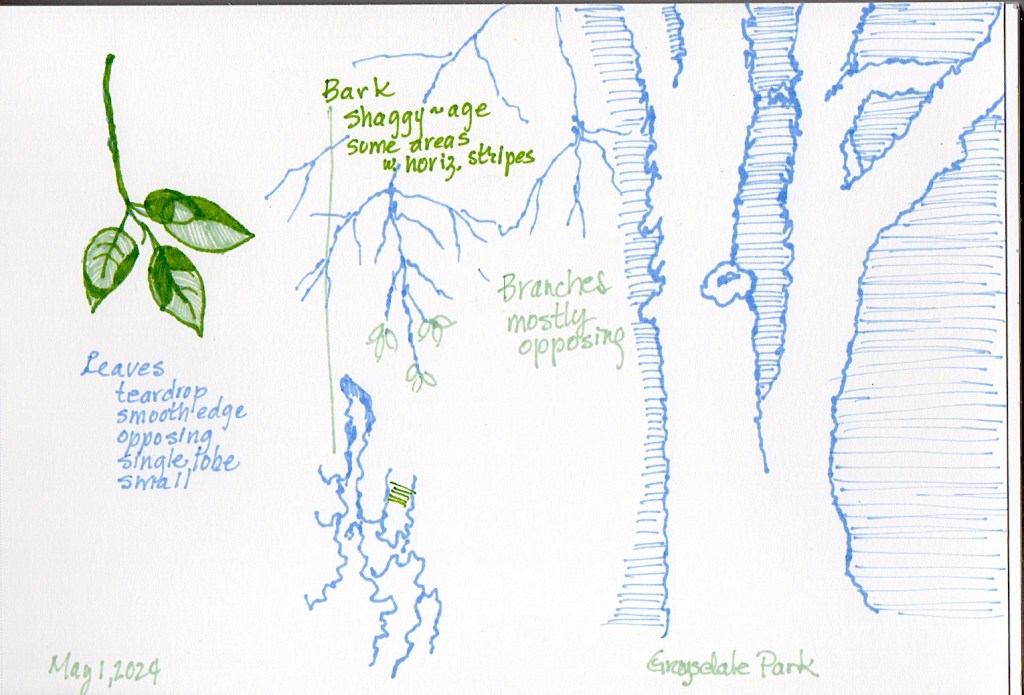 Bark
shaggy ~ age
some areas
w. horiz. stripes
Branches
mostly
opposing
Leaves
teardrop
smooth edge
opposing
single lobe
small
May 1, 2024
Park